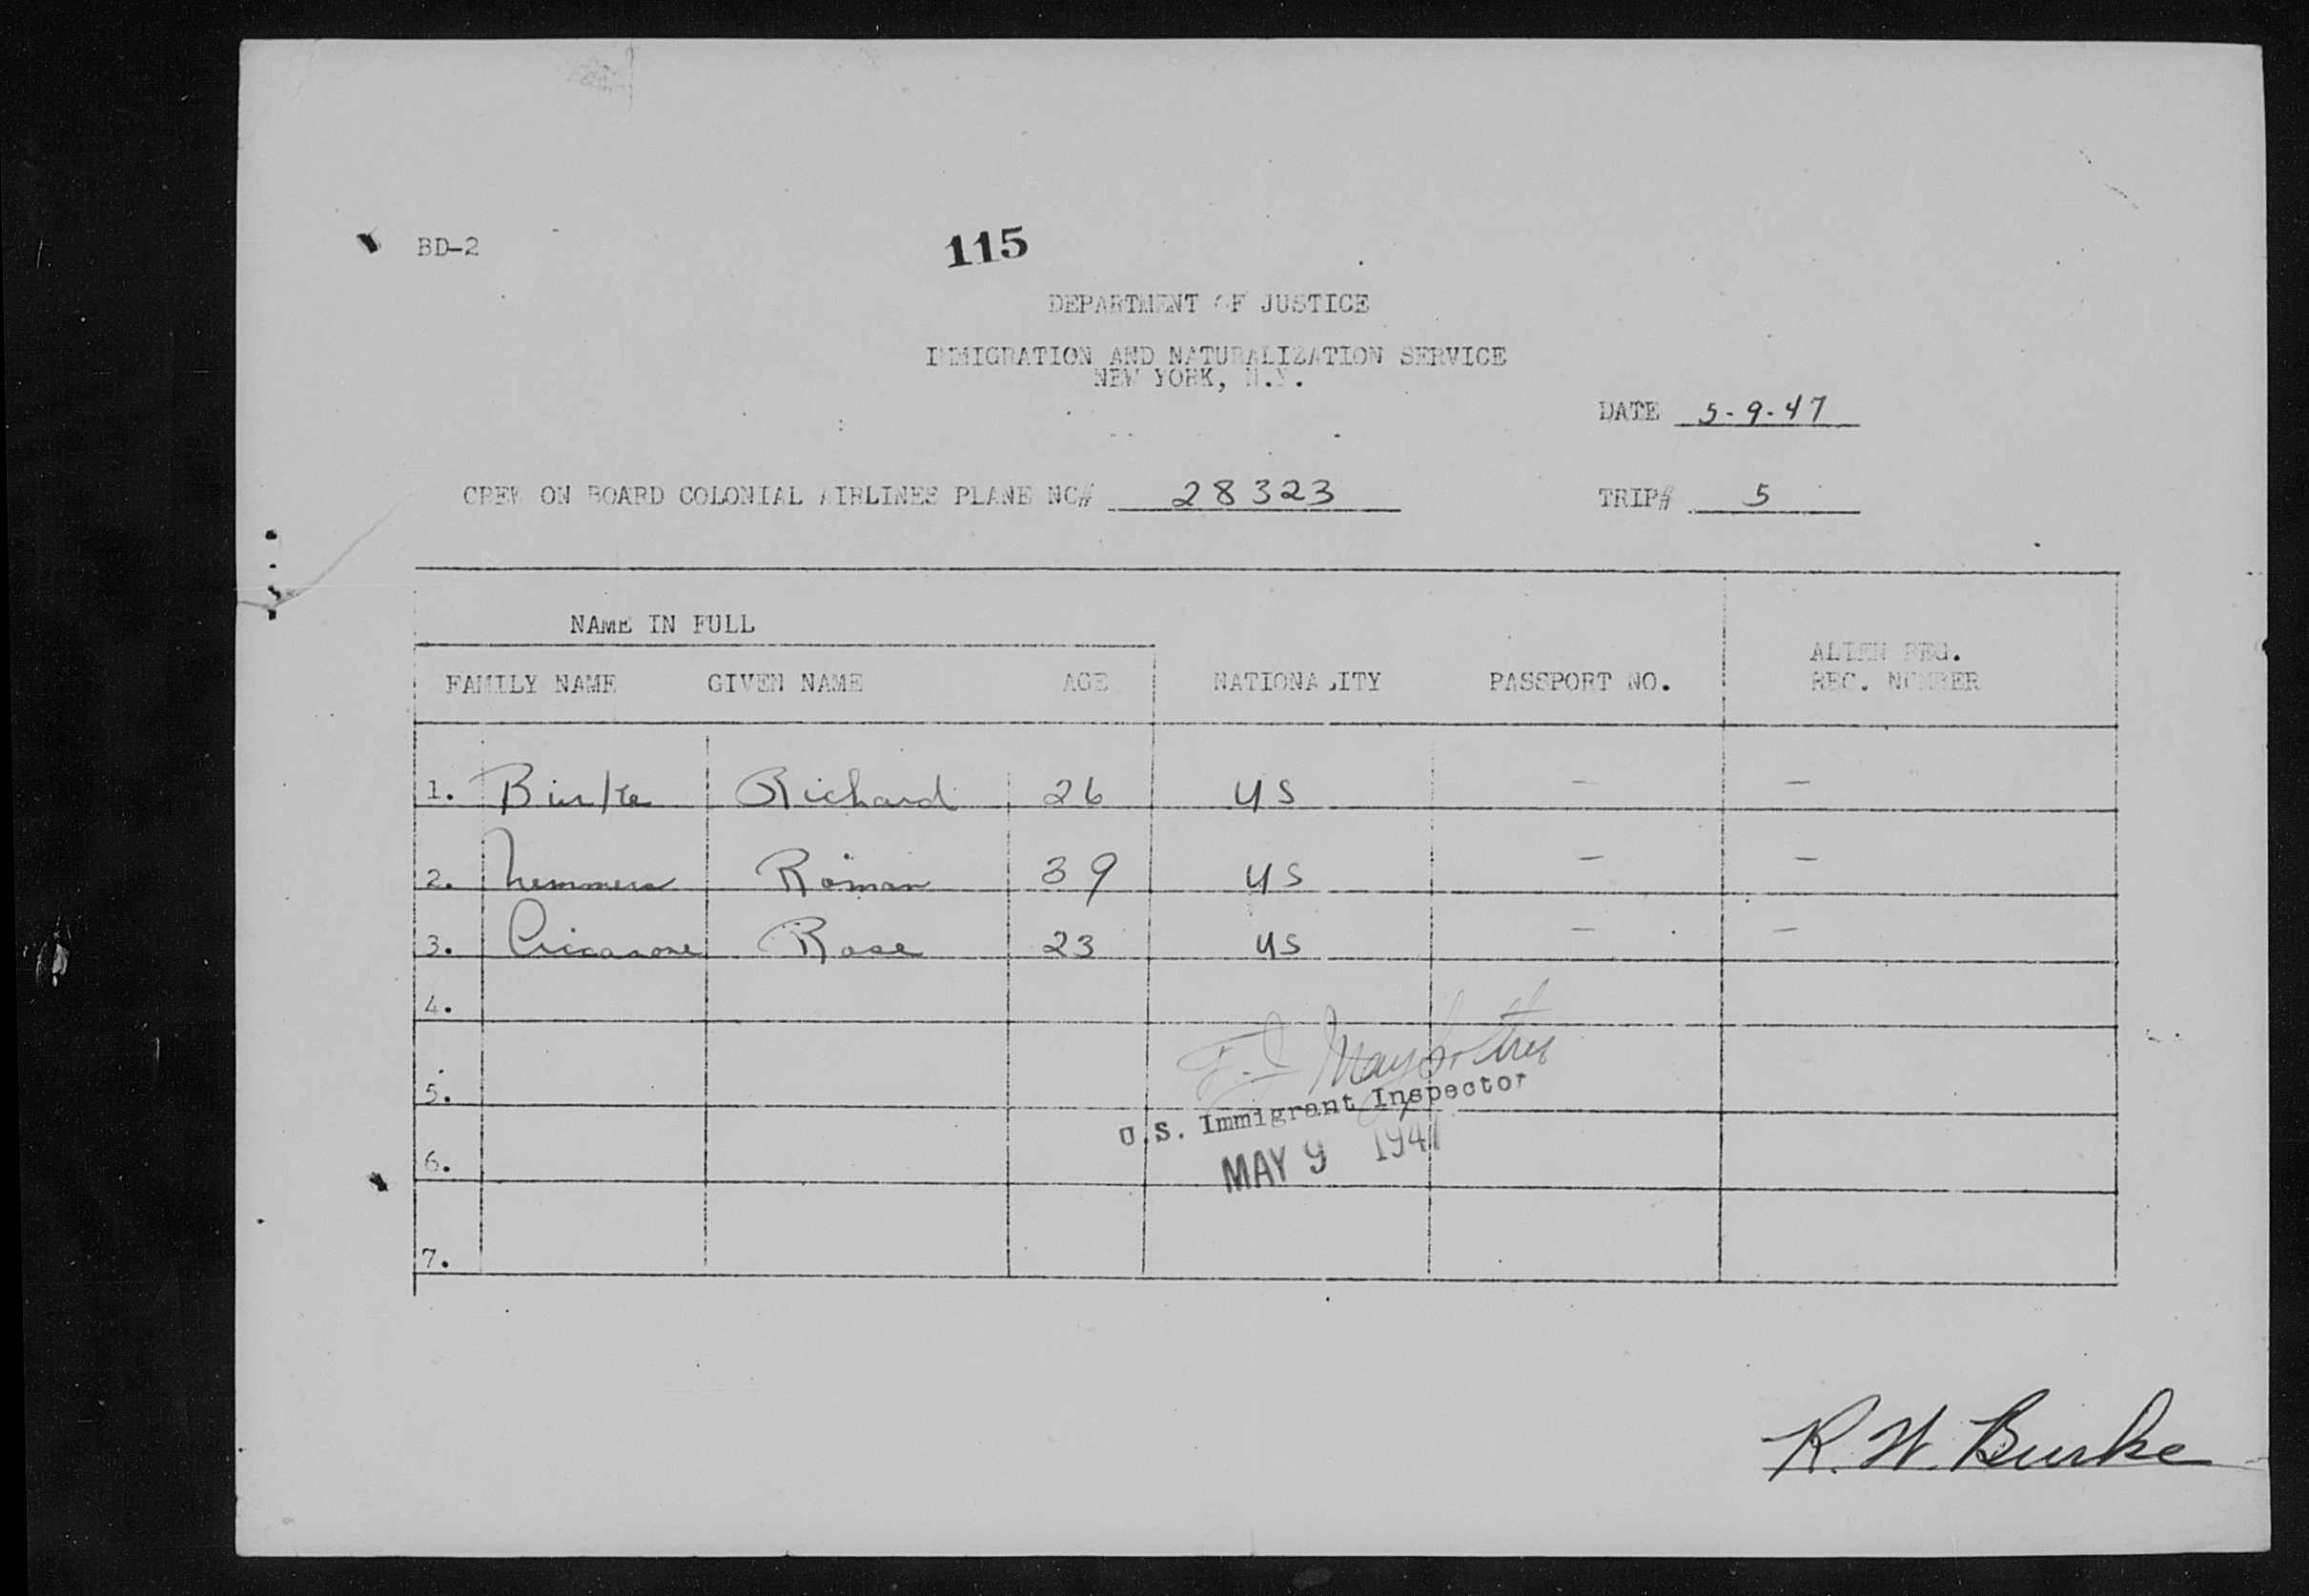 BD-2
115
DEPARTMENT OF JUSTICE
IMMIGRATION AND NATURALIZATION SERVICE
NEW YORK, N.Y.
DATE 5-9-47
CREW ON BOARD COLONIAL AIRLINES PLANE NO# 28323 TRIP# 5
NAME IN FULL
FAMILY NAME GIVEN NAME AGE NATIONALITY PASSPORT NO. ALIEN REG. REC. NUMBER
1. Burke Richard 26 US — —
2. Nemmers Roman 39 US — —
3. Rose 23 US — —
4.
5.
U.S. Immigrant Inspector
6.
MAY 9 1947
7.
R. W. Burke